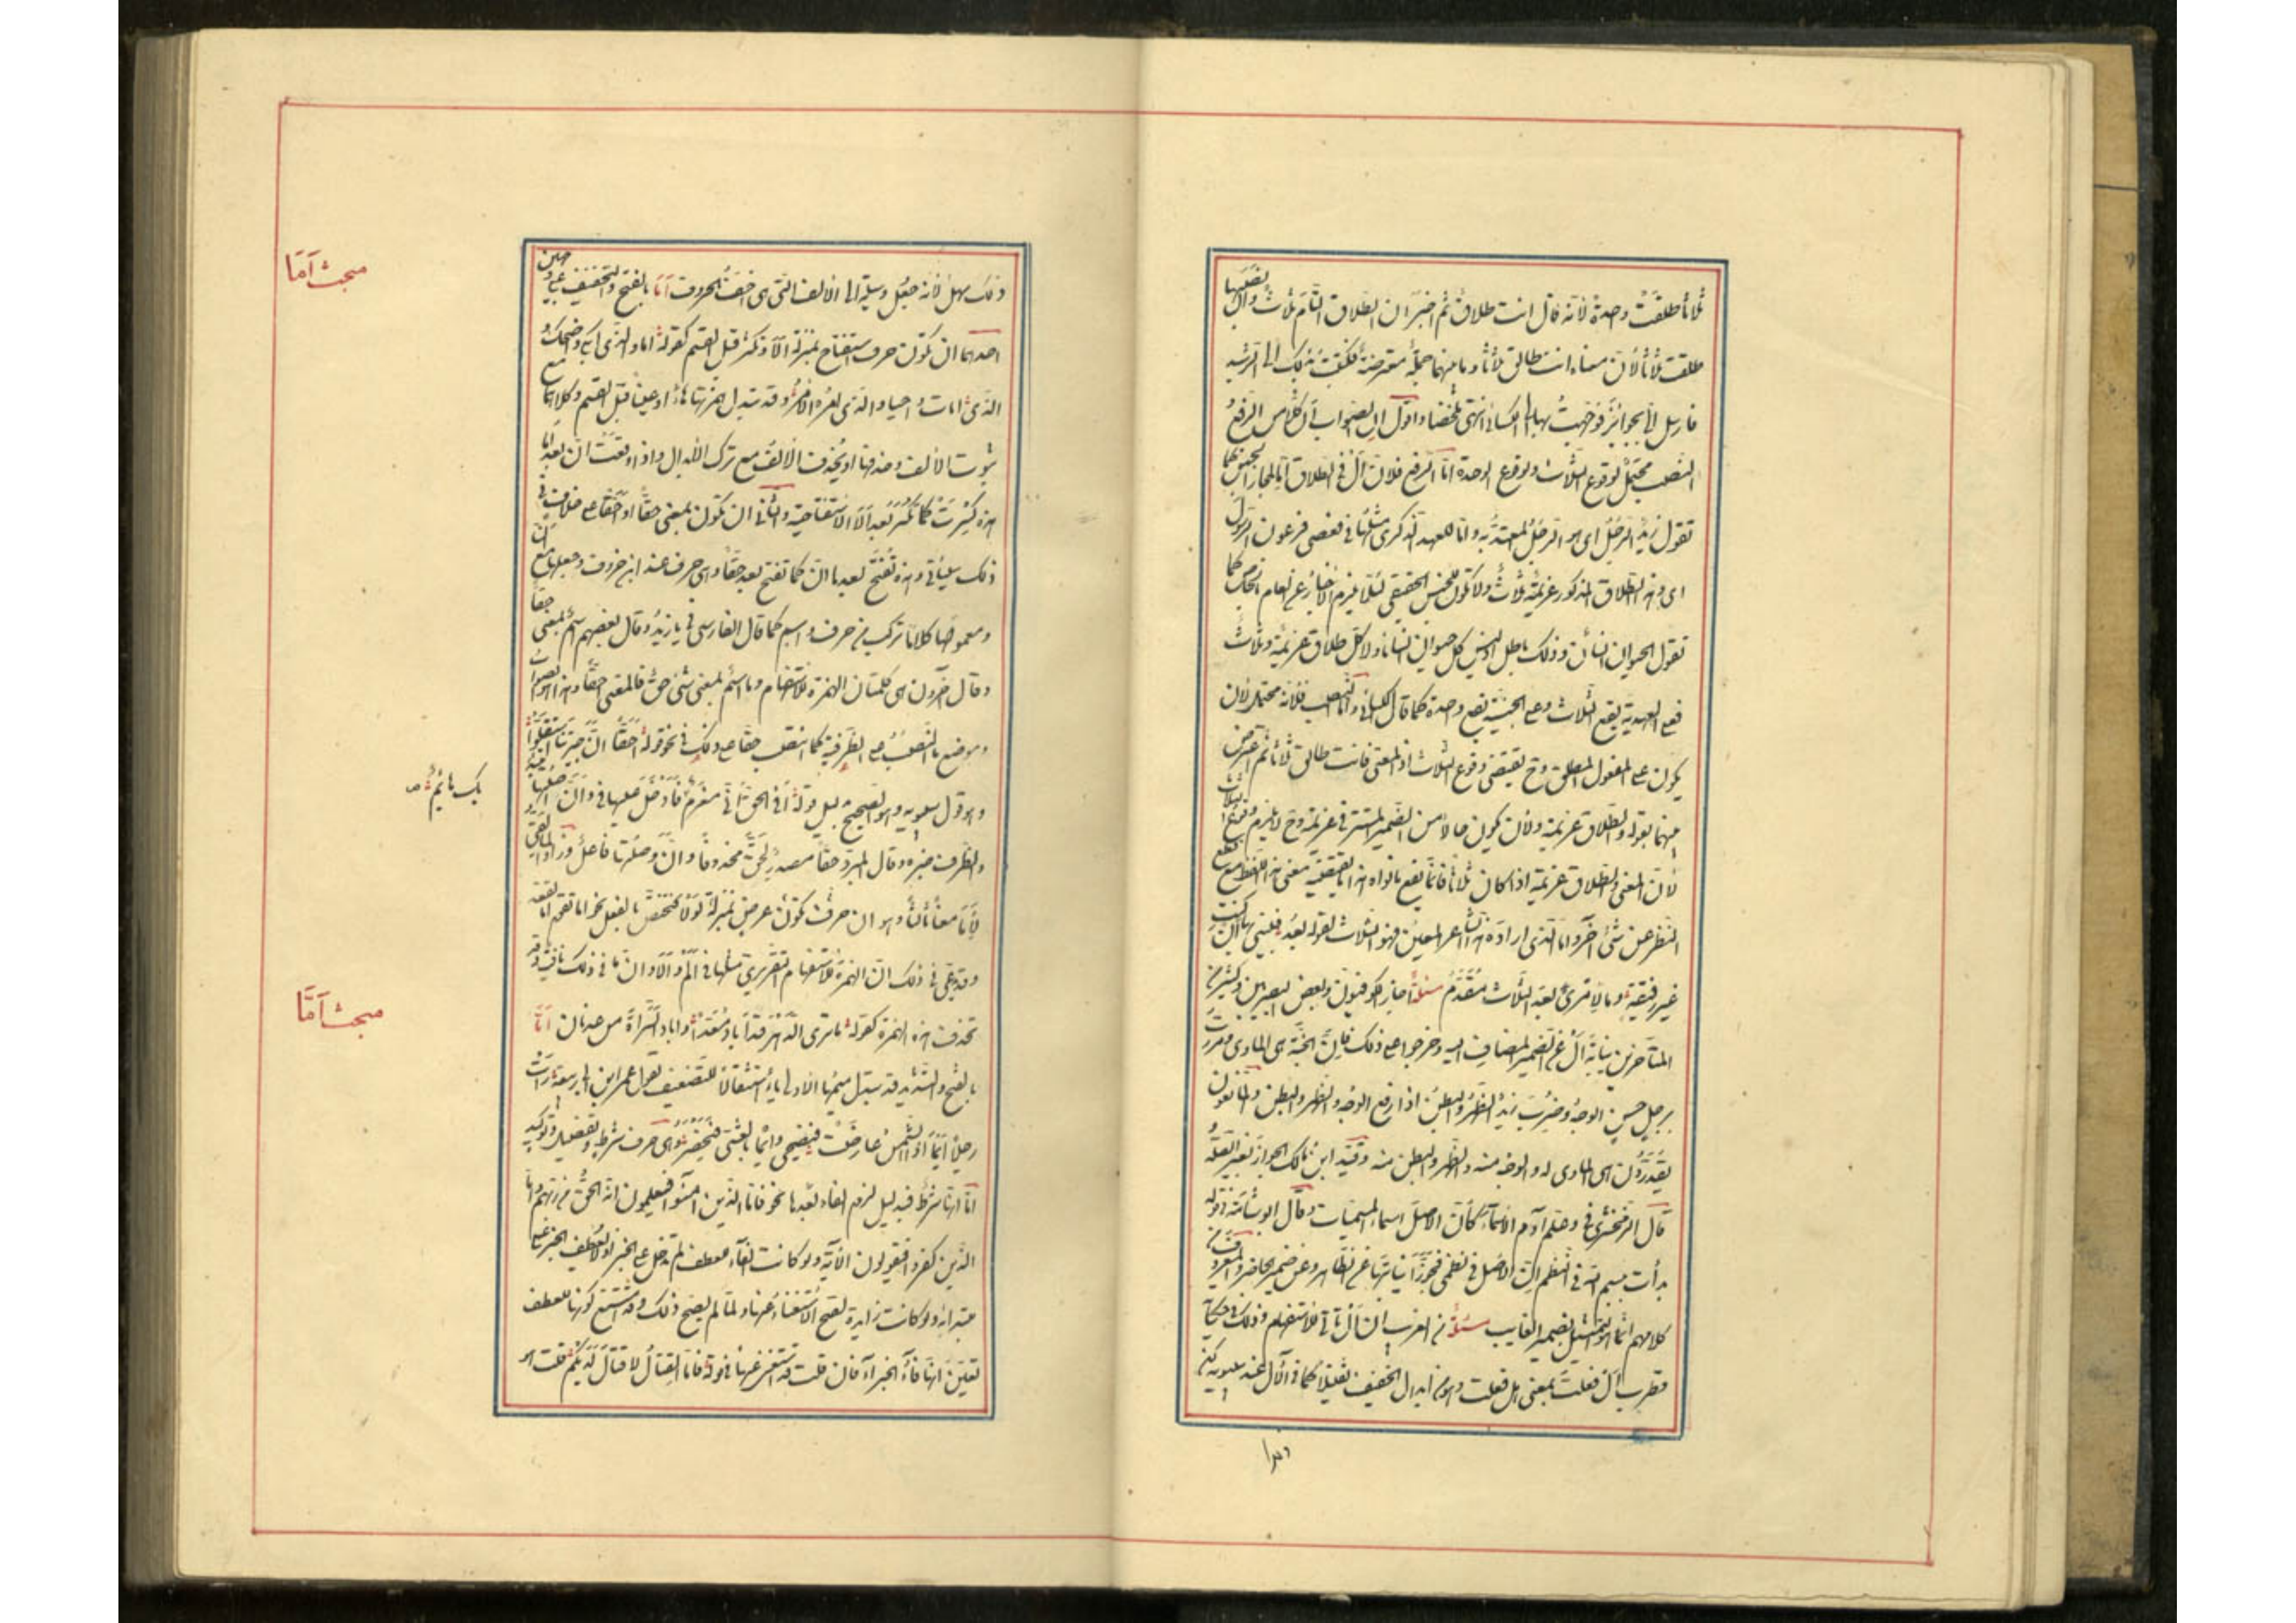 ثلاثا طلقت واحدة لأنه قال انت طلاق ثم اخبر ان الطلاق التام ثلاث وان نصبها
طلقت ثلاثا لأن معناه انت طالق ثلاثا وما بينهما جملة معترضة فكتبت بذلك الى الرشيد
فارسل الى بجوائز فوجهت بها الى الكسائى انتهى ملخصا واقول ان الصواب ان كلا من الرفع
والنصب محتمل لوقوع الثلاث ولوقوع الواحدة اما الرفع فلان ال فى الطلاق اما لمجاز الجنس كما
تقول زيد الرجل اى هو الرجل المعتد به واما للعهد الذكرى مثلها فى فعصى فرعون الرسول
اى وهذا الطلاق المذكور عزيمة ثلاث ولا تكون للجنس الحقيقى لئلا يلزم الاخبار عن العام بالخاص كما
تقول الحيوان انسان وذلك باطل اذ ليس كل حيوان انسانا ولا كل طلاق عزيمة وثلاث
فعلى العهدية يقع الثلاث وعلى الجنسية يقع واحدة كما قال الكسائى واما النصب فلانه محتمل لان
يكون على المفعول المطلق وح يقتضى وقوع الثلاث اذ المعنى فانت طالق ثلاثا ثم اعترض
بينهما بقوله والطلاق عزيمة ولان يكون حالا من الضمير المستتر فى عزيمة وح لا يلزم وقوع الثلاث
لأن المعنى والطلاق عزيمة اذا كان ثلاثا فانما يقع ما نواه هذا ما يقتضيه معنى هذا اللفظ مع قطع
النظر عن شئ آخر واما الذى اراده هذا الشاعر المعين فهو الثلاث لقوله بعد فبينى بها ان كنت
غير رفيقة وما لامرئ بعد الثلاث مقدم مسئلة اجاز الكوفيون وبعض البصريين وكثير من
المتأخرين نيابة ال عن الضمير المضاف اليه وخرجوا على ذلك فان الجنة هى الماوى ومررت
برجل حسن الوجه وضرب زيد الظهر والبطن اذا رفع الوجه والظهر والبطن والمانعون
يقدرون هى الماوى له والوجه منه والظهر والبطن منه وقيد ابن مالك الجواز بغير الصلة
قال الزمخشرى فى وعلم آدم الاسماء كلها ان الاصل اسماء المسميات وقال ابو شامة فى قوله
بدأت ببسم الله فى النظم ان الاصل فى نظمى فجوزا نيابتها عن الظاهر وعن ضمير الحاضر والمعروف من
كلامهم انما هو التمثيل بضمير الغايب مسئلة من الغرب ان ال تأتى للاستفهام وذلك فى حكاية
قطرب ال فعلت بمعنى هل فعلت وهو من ابدال الخفيف ثقيلا كما فى الآل عند سيبويه لكن
ذلك سهل لأنه جعل وسيلة الى الالف التى هى اخف الحروف اما بالفتح والتخفيف على وجهين
احدهما ان تكون حرف استفتاح بمنزلة الا وتكثر قبل القسم كقوله اما والذى ابكى واضحك و
الذى امات واحيا والذى امره الامر وقد تبدل همزتها هاء او عينا قبل القسم وكلاهما مع
ثبوت الالف وحذفها او تحذف الالف مع ترك الابدال واذا وقعت ان بعد اما
هذه كسرت كما تكسر بعد الا الاستفتاحية والثانى ان تكون بمعنى حقا او احقا على خلاف فى
ذلك سيأتى وهذه تفتح بعدها ان كما تفتح بعد حقا وهى حرف عند ابن خروف وجعلها مع ان
ومعموليها كلاما تركب من حرف واسم كما قال الفارسى فى يا زيد وقال بعضهم اسم بمعنى حقا
وقال آخرون هى كلمتان الهمزة للاستفهام وما اسم بمعنى شئ حق فالمعنى احقا وهذا هو الصواب
وموضع ما النصب على الظرفية كما انتصب حقا على ذلك فى نحو قوله احقا ان جيرتنا استقلوا
وهو قول سيبويه وهو الصحيح بدليل قوله افى الحق انى مغرم فادخل عليها فى وان وصلتها مبتدأ
والظرف خبره وقال المبرد حقا مصدر لحق محذوفا وان وصلتها فاعل وزاد المالقى
لأما معنا ثالثا وهو ان حرف تكون عرض بمنزلة لولا فتختص بالفعل نحو اما تقوم اما تقعد
وقد يدعى فى ذلك ان الهمزة للاستفهام التقريرى مثلها فى الم والا وان ما فى ذلك نافية وقد
تحذف هذه الهمزة كقوله ما ترى الدهر قد اباد معدا واباد السراة من عدنان اما
بالفتح والتشديد قد تبدل ميمها الاولى ياء استثقالا للتضعيف كقول عمر ابن ابى ربيعة رأت
رجلا ايما اذا الشمس عارضت فيضحى وايما بالعشى فيخصر وهى حرف شرط وتفصيل وتوكيد
اما انها شرط فبدليل لزوم الفاء بعدها نحو فاما الذين آمنوا فيعلمون انه الحق من ربهم واما
الذين كفروا فيقولون الآية ولو كانت الفاء للعطف لم تدخل على الخبر اذ لا يعطف الخبر على
مبتدائه ولو كانت زايدة لصح الاستغناء عنها ولما لم يصح ذلك وقد امتنع كونها للعطف
تعين انها فاء الجزاء فان قلت قد استغنى عنها فى قوله فاما القتال لا قتال لديكم قلت هو
مبحث أما
مبحث أما